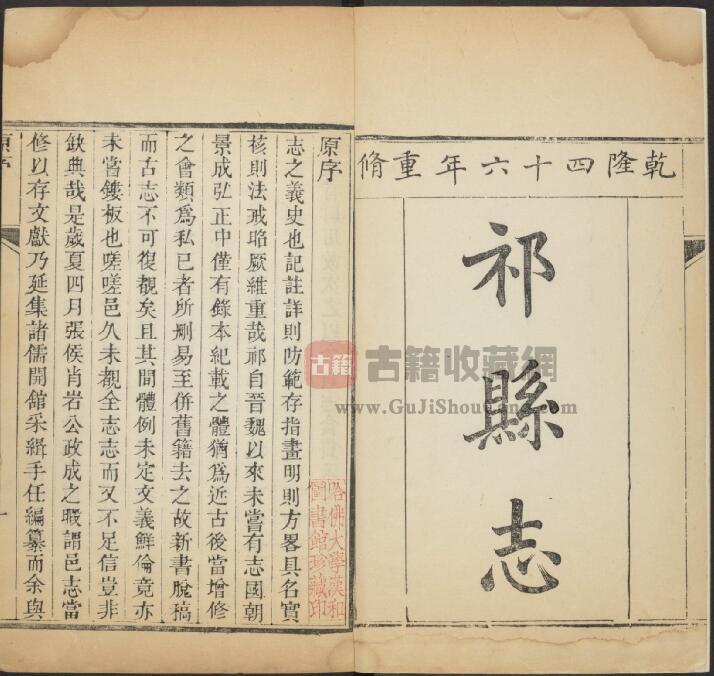 乾隆四十六年重脩
祁縣志
原序
志之義史也記註詳則防範存指畫明則方畧具名實
核則法戒昭厥維重哉祁自晉魏以來未嘗有志國朝
景成弘正中僅有錄本紀載之體猶為近古後當增修
之會類為私已者所刪易至併舊籍去之故新書脫稿
而古志不可復觀矣且其間體例未定文義鮮倫竟亦
未當鏤板也嗟嗟邑久未觀全志志而又不足信豈非
缺典哉是歲夏四月張侯肖岩公政成之暇謂邑志當
修以存文獻乃延集諸儒開舘采緝手任編纂而余與
原序
一
哈佛大學漢和
圖書館珍藏印
古籍
古籍收藏網
www.GuJiShouCang.com